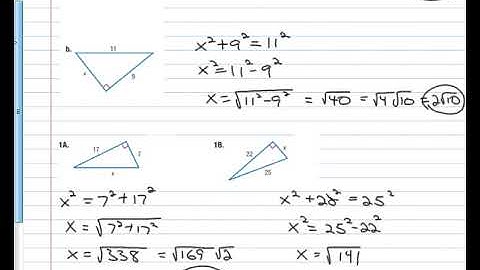 b.
11
x
9
x² + 9² = 11²
x² = 11² - 9²
x = √11² - 9² = √40 = √4 √10 = 2√10
1A.
17
7
x
1B.
22
x
25
x² = 7² + 17²
x = √7² + 17²
x = √338 = √169 √2
x² + 22² = 25²
x² = 25² - 22²
x = √141